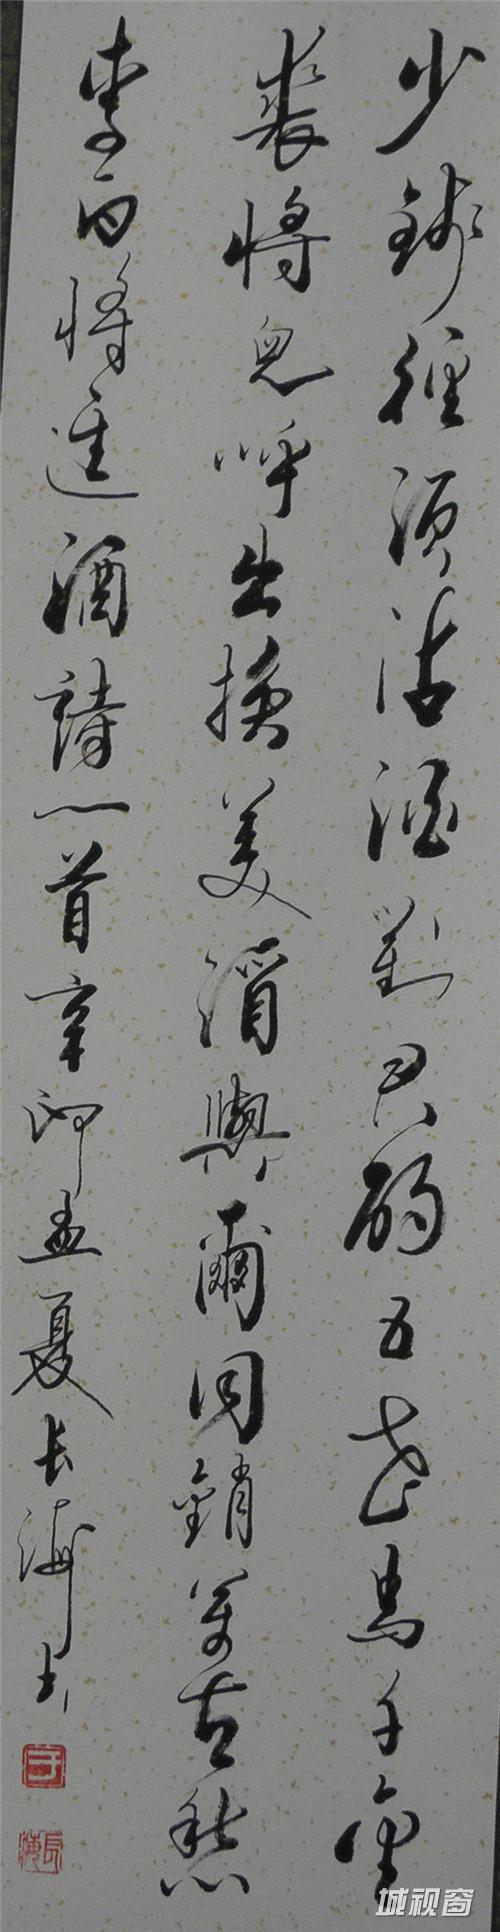 少錢徑須沽酒對君酌五花馬千金
裘將兒呼出換美酒與爾同銷萬古愁
李白將進酒詩一首辛卯孟夏长海书
長海
城视窗